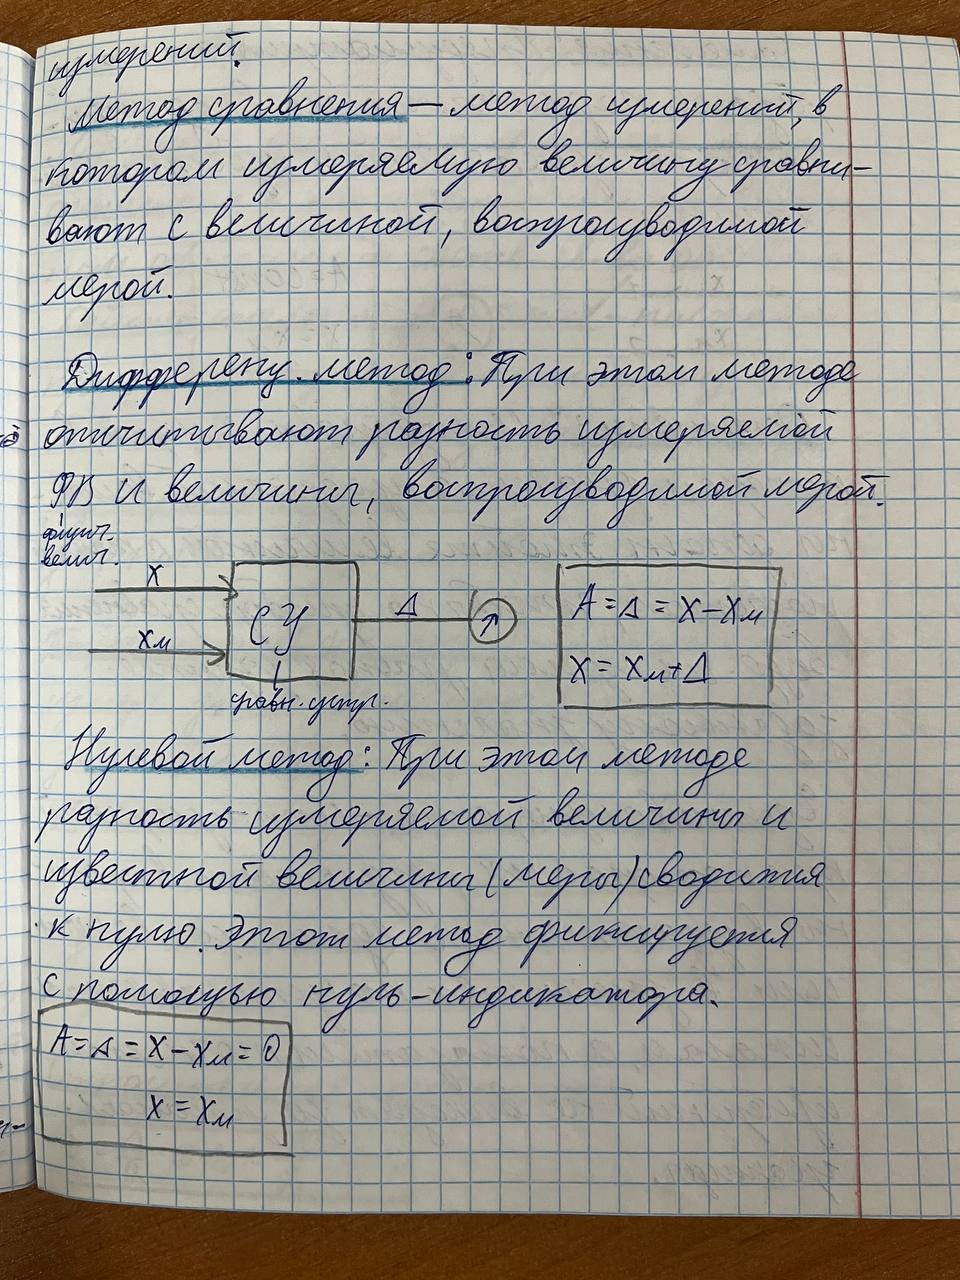 измерений.
Метод сравнения — метод измерений, в
котором измеряемую величину сравни-
вают с величиной, воспроизводимой
мерой.
Дифференц. метод: При этом методе
отсчитывают разность измеряемой
ФВ и величины, воспроизводимой мерой.
физич.
велич.
X
Xм
СУ
Δ
сравн. устр.
A = Δ = X − Xм
X = Xм + Δ
Нулевой метод: При этом методе
разность измеряемой величины и
известной величины (меры) сводится
к нулю. Этот метод фиксируется
с помощью нуль-индикатора.
A = Δ = X − Xм = 0
X = Xм